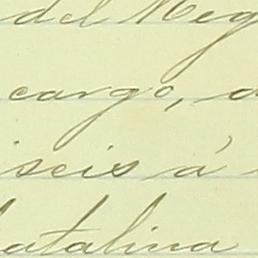 del Neg
cargo, a
iseis á
Catalina